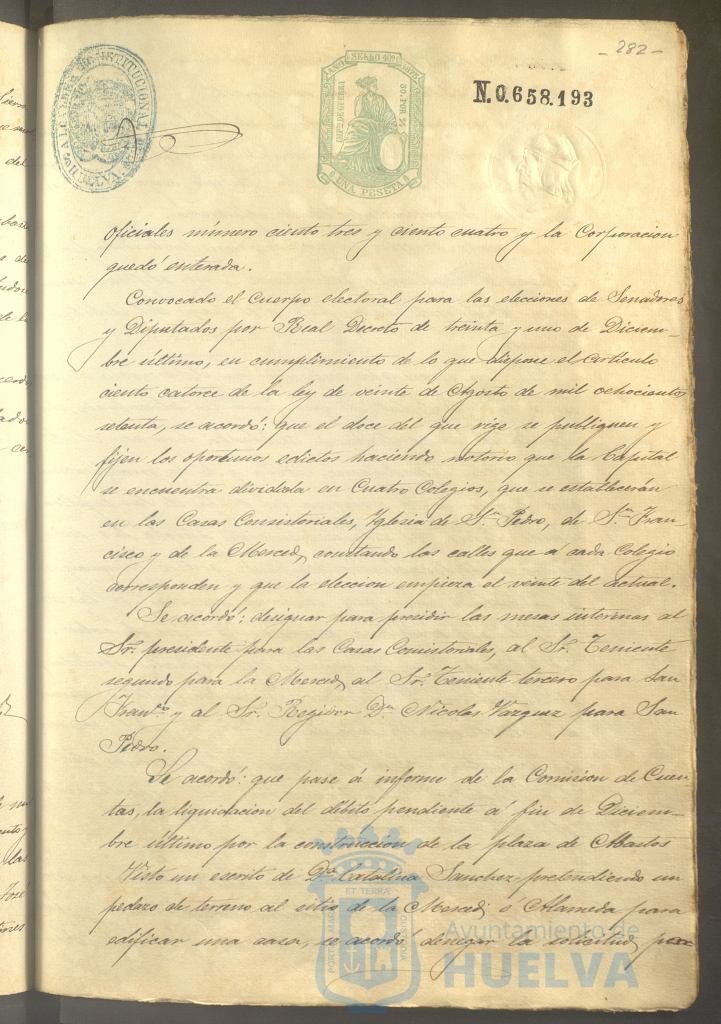 - 282 -
ALCALDIA CONSTITUCIONAL
HUELVA
AÑO SELLO 10º
IMPTO DE GUERRA
UNA PESETA
N.0.658.193
oficiales número ciento tres y ciento cuatro y la Corporacion
quedó enterada.
Convocado el Cuerpo electoral para las elecciones de Senadores
y Diputados por Real Decreto de treinta y uno de Diciem-
bre último, en cumplimiento de lo que dispone el artículo
ciento catorce de la ley de veinte de Agosto de mil ochocientos
setenta, se acordó: que el doce del que rige se publiquen y
fijen los oportunos edictos haciendo notorio que la Capital
se encuentra dividida en Cuatro Colegios, que se establecerán
en las Casas Consistoriales, Yglesia de Sn. Pedro, de Sn. Fran
cisco y de la Merced, constando las calles que á cada Colegio
corresponden y que la eleccion empieza el veinte del actual.
Se acordó: designar para presidir las mesas interinas al
Sr. presidente para las Casas Consistoriales, al Sr. Teniente
segundo para la Merced, al Sr. Teniente tercero para San
Franco y al Sr. Regidor Dn Nicolas Vazquez para San
Pedro.
Se acordó: que pase á informe de la Comision de Cuen-
tas, la liquidacion del débito pendiente á fin de Diciem-
bre último por la construccion de la plaza de Abastos
Visto un escrito de Da Catalina Sanchez pretendiendo un
pedazo de terreno al sitio de la Merced ó Alameda para
edificar una casa, se acordó denegar la solicitud, por
Ayuntamiento de
HUELVA